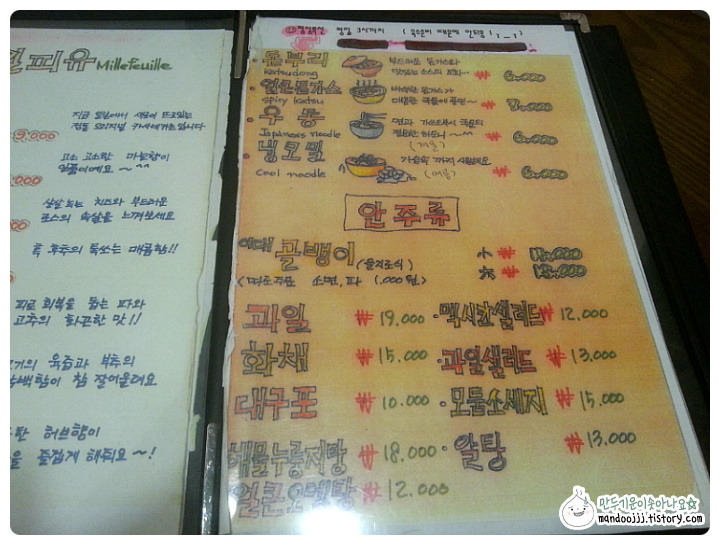 밀피유 Millefeuille
지금 일본에서 새로이 뜨고있는
정통 오리지널 카사네가츠입니다
9,000
고소 고소한 마늘향이
일품이에요~^^
살살 녹는 치즈와 부드러운
포스의 속살을 느껴보세요
흑 후추의 톡쏘는 매콤함!!
피로 회복을 돕는 파와
고추의 화끈한 맛!!
고기의 육즙과 부추의
담백함이 참 잘어울려요
허브향이
즐겁게 해줘요~!
점심특선 평일 3시까지 (
돈부리 부드러운 돈가스와
Katsudong 맛있는 소스의 조화~^^ ₩ 6,000
얼큰돈가스 바삭한 돈가스가
Spicy katsu 매콤한 국물에 퐁당~ ₩ 8,000
우동
Japaness noodle (겨울) ₩ 6,000
냉모밀 가슴속 까지 시원해요
Cool noodle (여름) ₩ 6,000
안주류
골뱅이 (을지로식) 小 ₩
大 ₩
소면, 파 1,000원)
과일 ₩ 19,000 · 맥시칸샐러드 ₩ 12,000
화채 ₩ 15,000 · 과일샐러드 ₩ 13,000
대구포 ₩ 10,000 · 모둠소세지 ₩ 15,000
해물누룽지탕 ₩ 18,000 · 알탕 ₩ 13,000
얼큰오뎅탕 ₩ 12,000
만두기운이솟아나요☆
mandoojjj.tistory.com